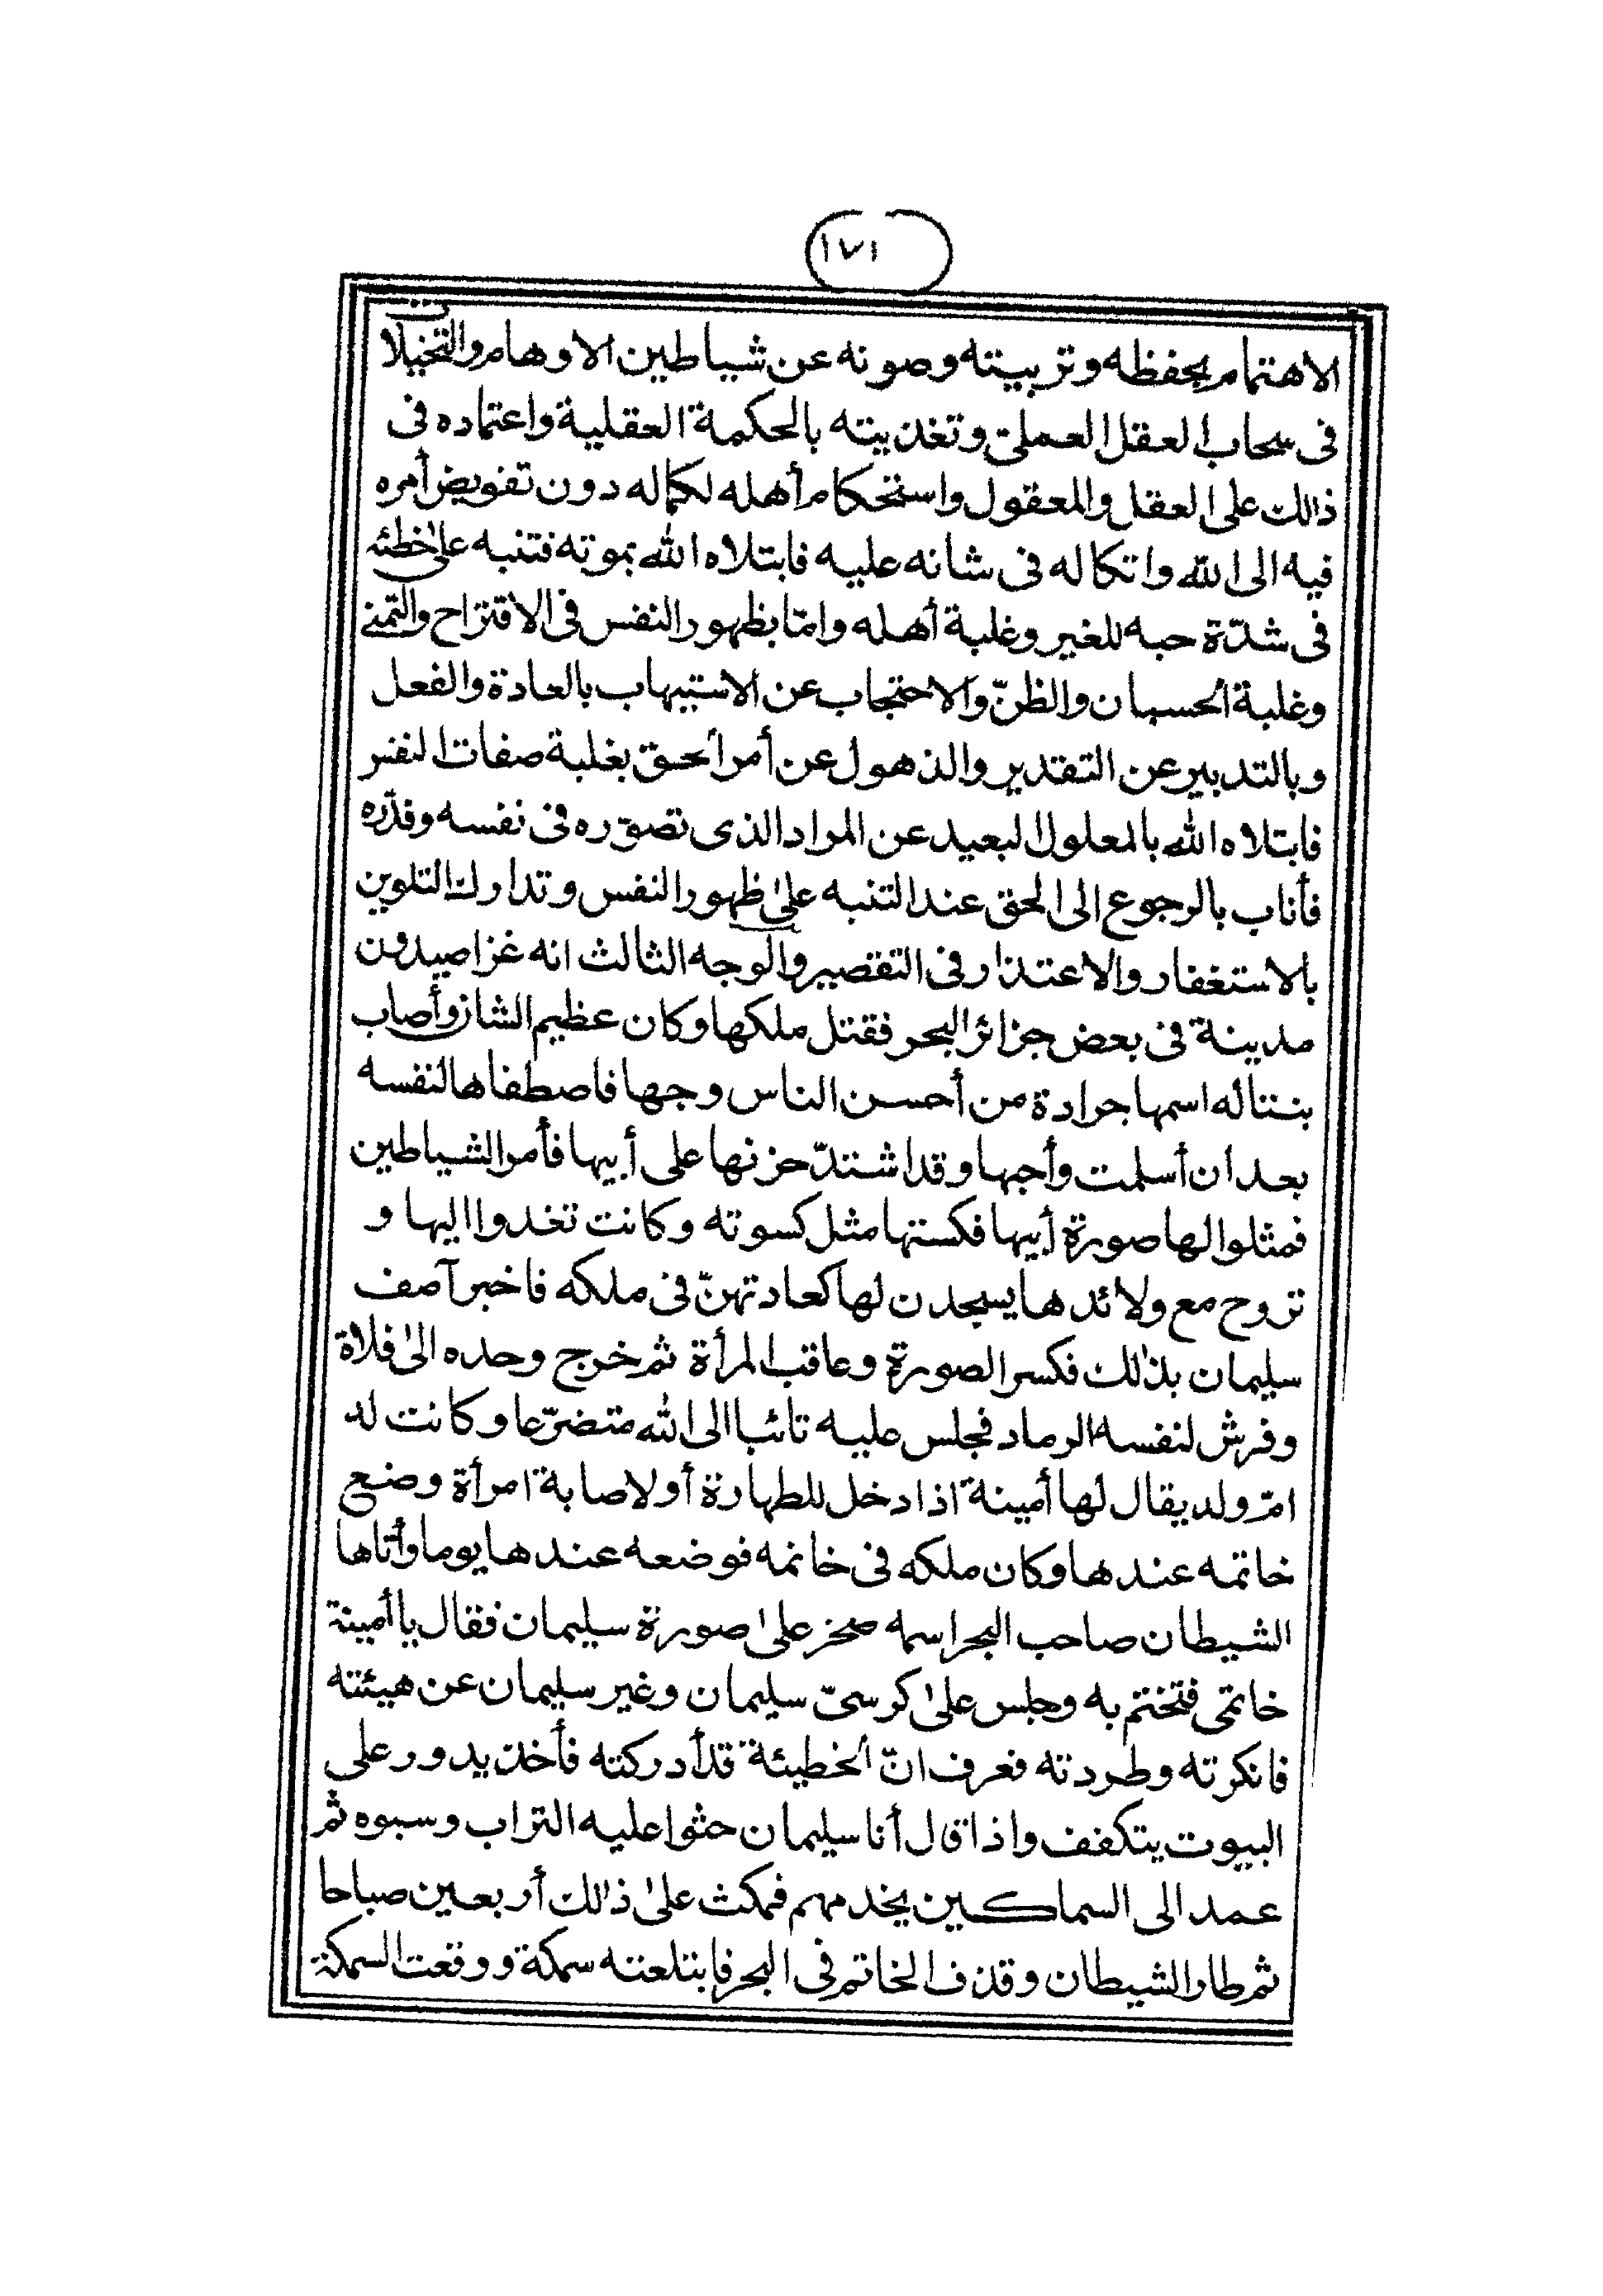 ١٧١
الاهتمام بحفظه وتربيته وصونه عن شياطين الاوهام والتخيلات
فى سحاب العقل العملىّ وتغذيته بالحكمة العقلية واعتماده فى
ذالك على العقل والمعقول واستحكام أهله لكماله دون تفويض أمره
فيه الى الله واتكاله فى شانه عليه فابتلاه الله بموته فتنبه على خطئه
فى شدّة حبه للغير وغلبة أهله وامّا بظهور النفس فى الاقتراح والتمنى
وغلبة الحسبان والظنّ والاحتجاب عن الاستيهاب بالعادة والفعل
وبالتدبير عن التقدير والذهول عن أمر الحق بغلبة صفات النفس
فابتلاه الله بالمعلول البعيد عن المراد الذى تصوّره فى نفسه وقدّره
فأناب بالرجوع الى الحق عند التنبه علىٰ ظهور النفس وتدارك التلوين
بالاستغفار والاعتذار فى التقصير والوجه الثالث انه غزا صيدون
مدينة فى بعض جزائر البحر فقتل ملكها وكان عظيم الشان وأصاب
بنتا له اسمها جرادة من أحسن الناس وجها فاصطفاها لنفسه
بعد ان أسلمت وأحبها وقد اشتدّ حزنها على أبيها فأمر الشياطين
فمثلوا لها صورة أبيها فكستها مثل كسوته وكانت تغدوا اليها و
تروح مع ولائدها يسجدن لها كعادتهنّ فى ملكه فاخبر آصف
سليمان بذٰلك فكسر الصورة وعاقب المرأة ثم خرج وحده الىٰ فلاة
وفرش لنفسه الرماد فجلس عليه تائبا الى الله متضرّعا وكانت له
امّ ولد يقال لها أمينة اذا دخل للطهارة أو لاصابة امرأة وضع
خاتمه عندها وكان ملكه فى خاتمه فوضعه عندها يوما وأتاها
الشيطان صاحب البحر اسمه صخر علىٰ صورة سليمان فقال يا أمينة
خاتمى فتختم به وجلس علىٰ كرسىّ سليمان وغير سليمان عن هيئته
فانكرته وطردته فعرف انّ الخطيئة قد أدركته فأخذ يدور على
البيوت يتكفف واذا قال أنا سليمان حثوا عليه التراب وسبوه ثم
عمد الى السماكين يخدمهم فمكث علىٰ ذٰلك أربعين صباحا
ثم طار الشيطان وقذف الخاتم فى البحر فابتلعته سمكة ووقعت السمكة